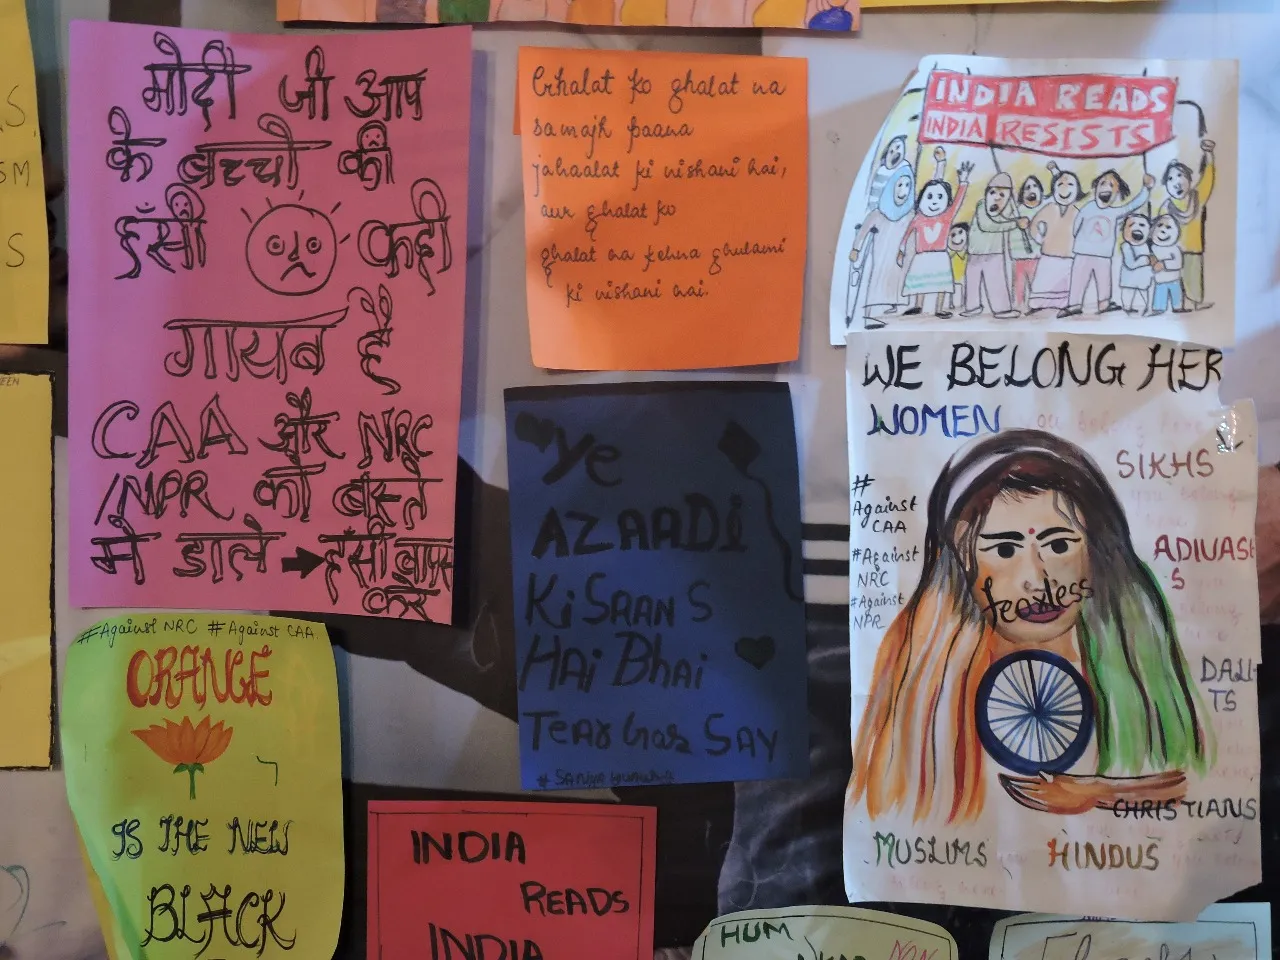 S.
SM
S
EEN
मोदी जी आप
के बच्चो की
हँसी कही
गायब है
CAA और NRC
/NPR को बस्ते
मे डाले → हंसी वापस
करें
Ghalat ko ghalat na
samajh paana
jahaalat ki nishani hai,
aur ghalat ko
ghalat na kehna ghulami
ki nishani hai.
INDIA READS
INDIA RESISTS
Ye
AZAADI
KiSAAN S
HAi Bhai
Tear Gas SAY
WE BELONG HER
WOMEN
SIKHS
# Against
CAA
ADIVASI
S
#Against
NRC
#Against
NPR
fearless
DALI
TS
CHRISTIANS
MUSLIMS HINDUS
#Against NRC #Against CAA
ORANGE
IS THE NEW
BLACK
INDIA
READS
INDIA
HUM